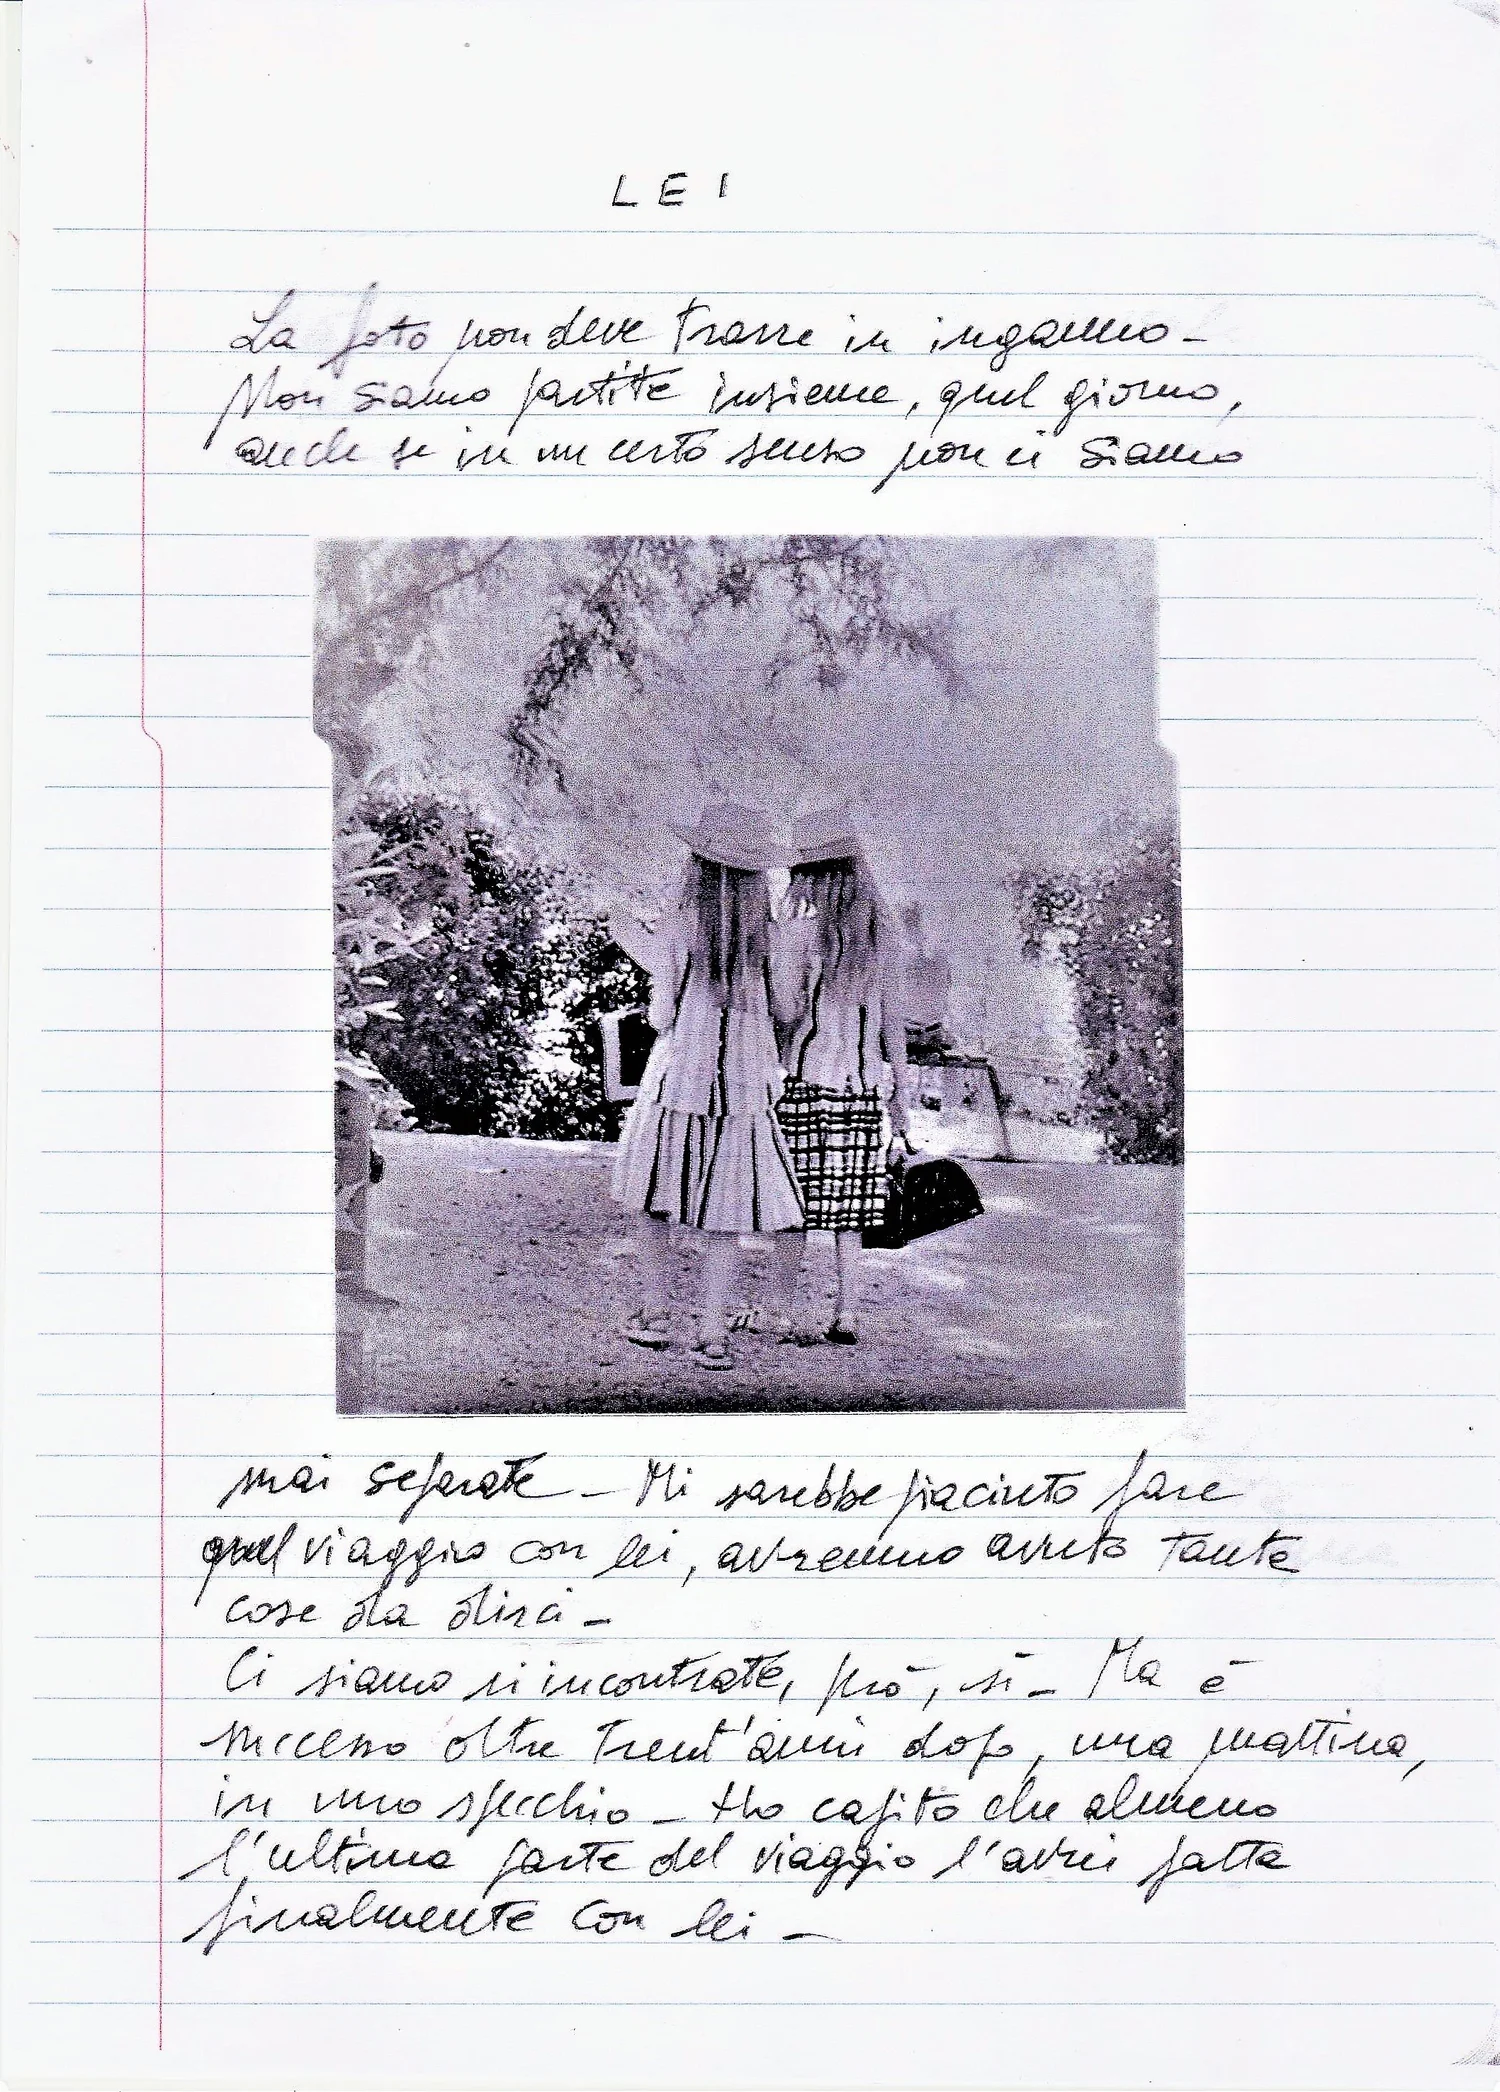 LEI
La foto non deve trarre in inganno -
Non siamo partite insieme, quel giorno,
anche se in un certo senso non ci siamo
mai separate - Mi sarebbe piaciuto fare
quel viaggio con lei, avremmo avuto tante
cose da dirci -
Ci siamo rincontrate, però, sì - Ma è
successo oltre trent'anni dopo, una mattina,
in uno specchio - Ho capito che almeno
l'ultima parte del viaggio l'avrei fatta
finalmente con lei -